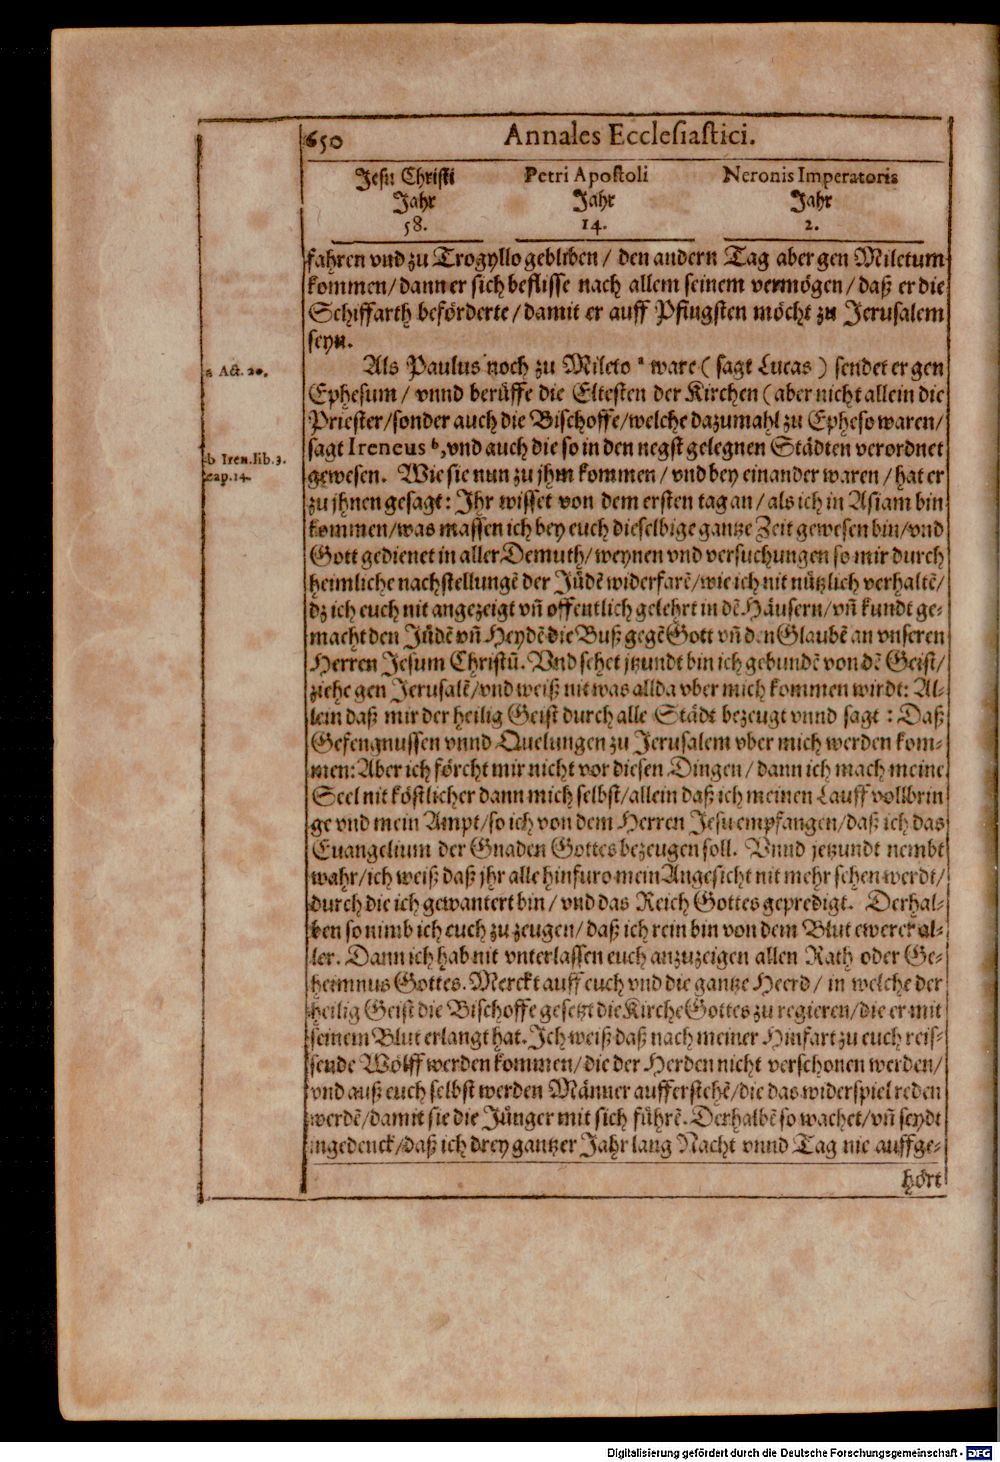 650 Annales Ecclesiastici.
Jesu Christi Petri Apostoli Neronis Imperatoris
Jahr Jahr Jahr
58. 14. 2.
fahren vnd zu Trogyllo gebliben / den andern Tag aber gen Miletum
kommen / dann er sich beflisse nach allem seinem vermögen / daß er die
Schiffarth beförderte / damit er auff Pfingsten möcht zu Jerusalem
seyn.
a Act. 20.
Als Paulus noch zu Mileto ᵃ ware ( sagt Lucas ) sendet er gen
Ephesum / vnnd berüffe die Eltesten der Kirchen ( aber nicht allein die
Priester / sonder auch die Bischoffe / welche dazumahl zu Epheso waren /
b Iren. lib. 3.
cap. 14.
sagt Ireneus ᵇ, vnd auch die so in den negst gelegnen Städten verordnet
gewesen. Wie sie nun zu jhm kommen / vnd bey einander waren / hat er
zu jhnen gesagt: Jhr wisset von dem ersten tag an / als ich in Asiam bin
kommen / was massen ich bey euch dieselbige gantze Zeit gewesen bin / vnd
Gott gedienet in aller Demuth / weynen vnd versuchungen so mir durch
heimliche nachstellungẽ der Jüdẽ widerfarẽ / wie ich nit nützlich verhaltẽ /
dz ich euch nit angezeigt vñ offentlich gelehrt in dẽ Häusern / vñ kundt ge-
macht den Jüdẽ vñ Heydẽ die Buß gegẽ Gott vñ den Glaubẽ an vnseren
Herren Jesum Christũ. Vnd sehet jtzundt bin ich gebundẽ von dẽ Geist /
ziehe gen Jerusalẽ / vnd weiß nit was allda vber mich kommen wirdt: Al-
lein daß mir der heilig Geist durch alle Städt bezeugt vnnd sagt : Daß
Gefengnussen vnnd Quelungen zu Jerusalem vber mich werden kom-
men: Aber ich förcht mir nicht vor diesen Dingen / dann ich mach meine
Seel nit köstlicher dann mich selbst / allein daß ich meinen Lauff vollbrin
ge vnd mein Ampt / so ich von dem Herren Jesu empfangen / daß ich das
Euangelium der Gnaden Gottes bezeugen soll. Vnnd jetzundt nembt
wahr / ich weiß daß jhr alle hinfuro mein Angesicht nit mehr sehen werdt /
durch die ich gewantert bin / vnd das Reich Gottes gepredigt. Derhal-
ben so nimb ich euch zu zeugen / daß ich rein bin von dem Blut ewerer al-
ler. Dann ich hab nit vnterlassen euch anzuzeigen allen Rath oder Ge-
heimnus Gottes. Merckt auff euch vnd die gantze Heerd / in welche der
heilig Geist die Bischoffe gesetzt die Kirche Gottes zu regieren / die er mit
seinem Blut erlangt hat. Ich weiß daß nach meiner Hinfart zu euch reis-
sende Wölff werden kommen / die der Herden nicht verschonen werden /
vnd auß euch selbst werden Männer aufferstehẽ / die das widerspiel reden
werdẽ / damit sie die Jünger mit sich führẽ. Derhalbẽ so wachet / vñ seydt
ingedenck / daß ich drey gantzer Jahr lang Nacht vnnd Tag nie auffge-
hört
Digitalisierung gefördert durch die Deutsche Forschungsgemeinschaft - DFG